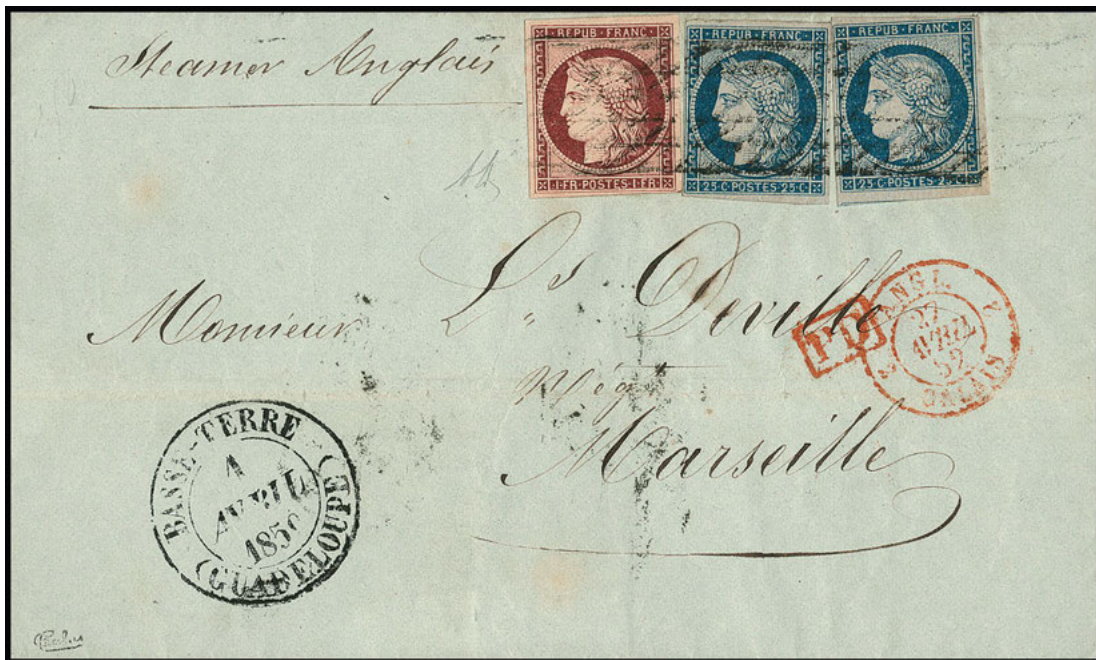 Steamer Anglais
REPUB·FRANC·
1·FR·POSTES·1·FR·
REPUB·FRANC·
25·C·POSTES·25·C·
REPUB·FRANC·
25·C·POSTES·25·C·
Monsieur Ls Deville
Négt
Marseille
PD
ANGL.
27
AVRIL
52
CALAIS
BASSE-TERRE
1
AVRIL
185
(GUADELOUPE)